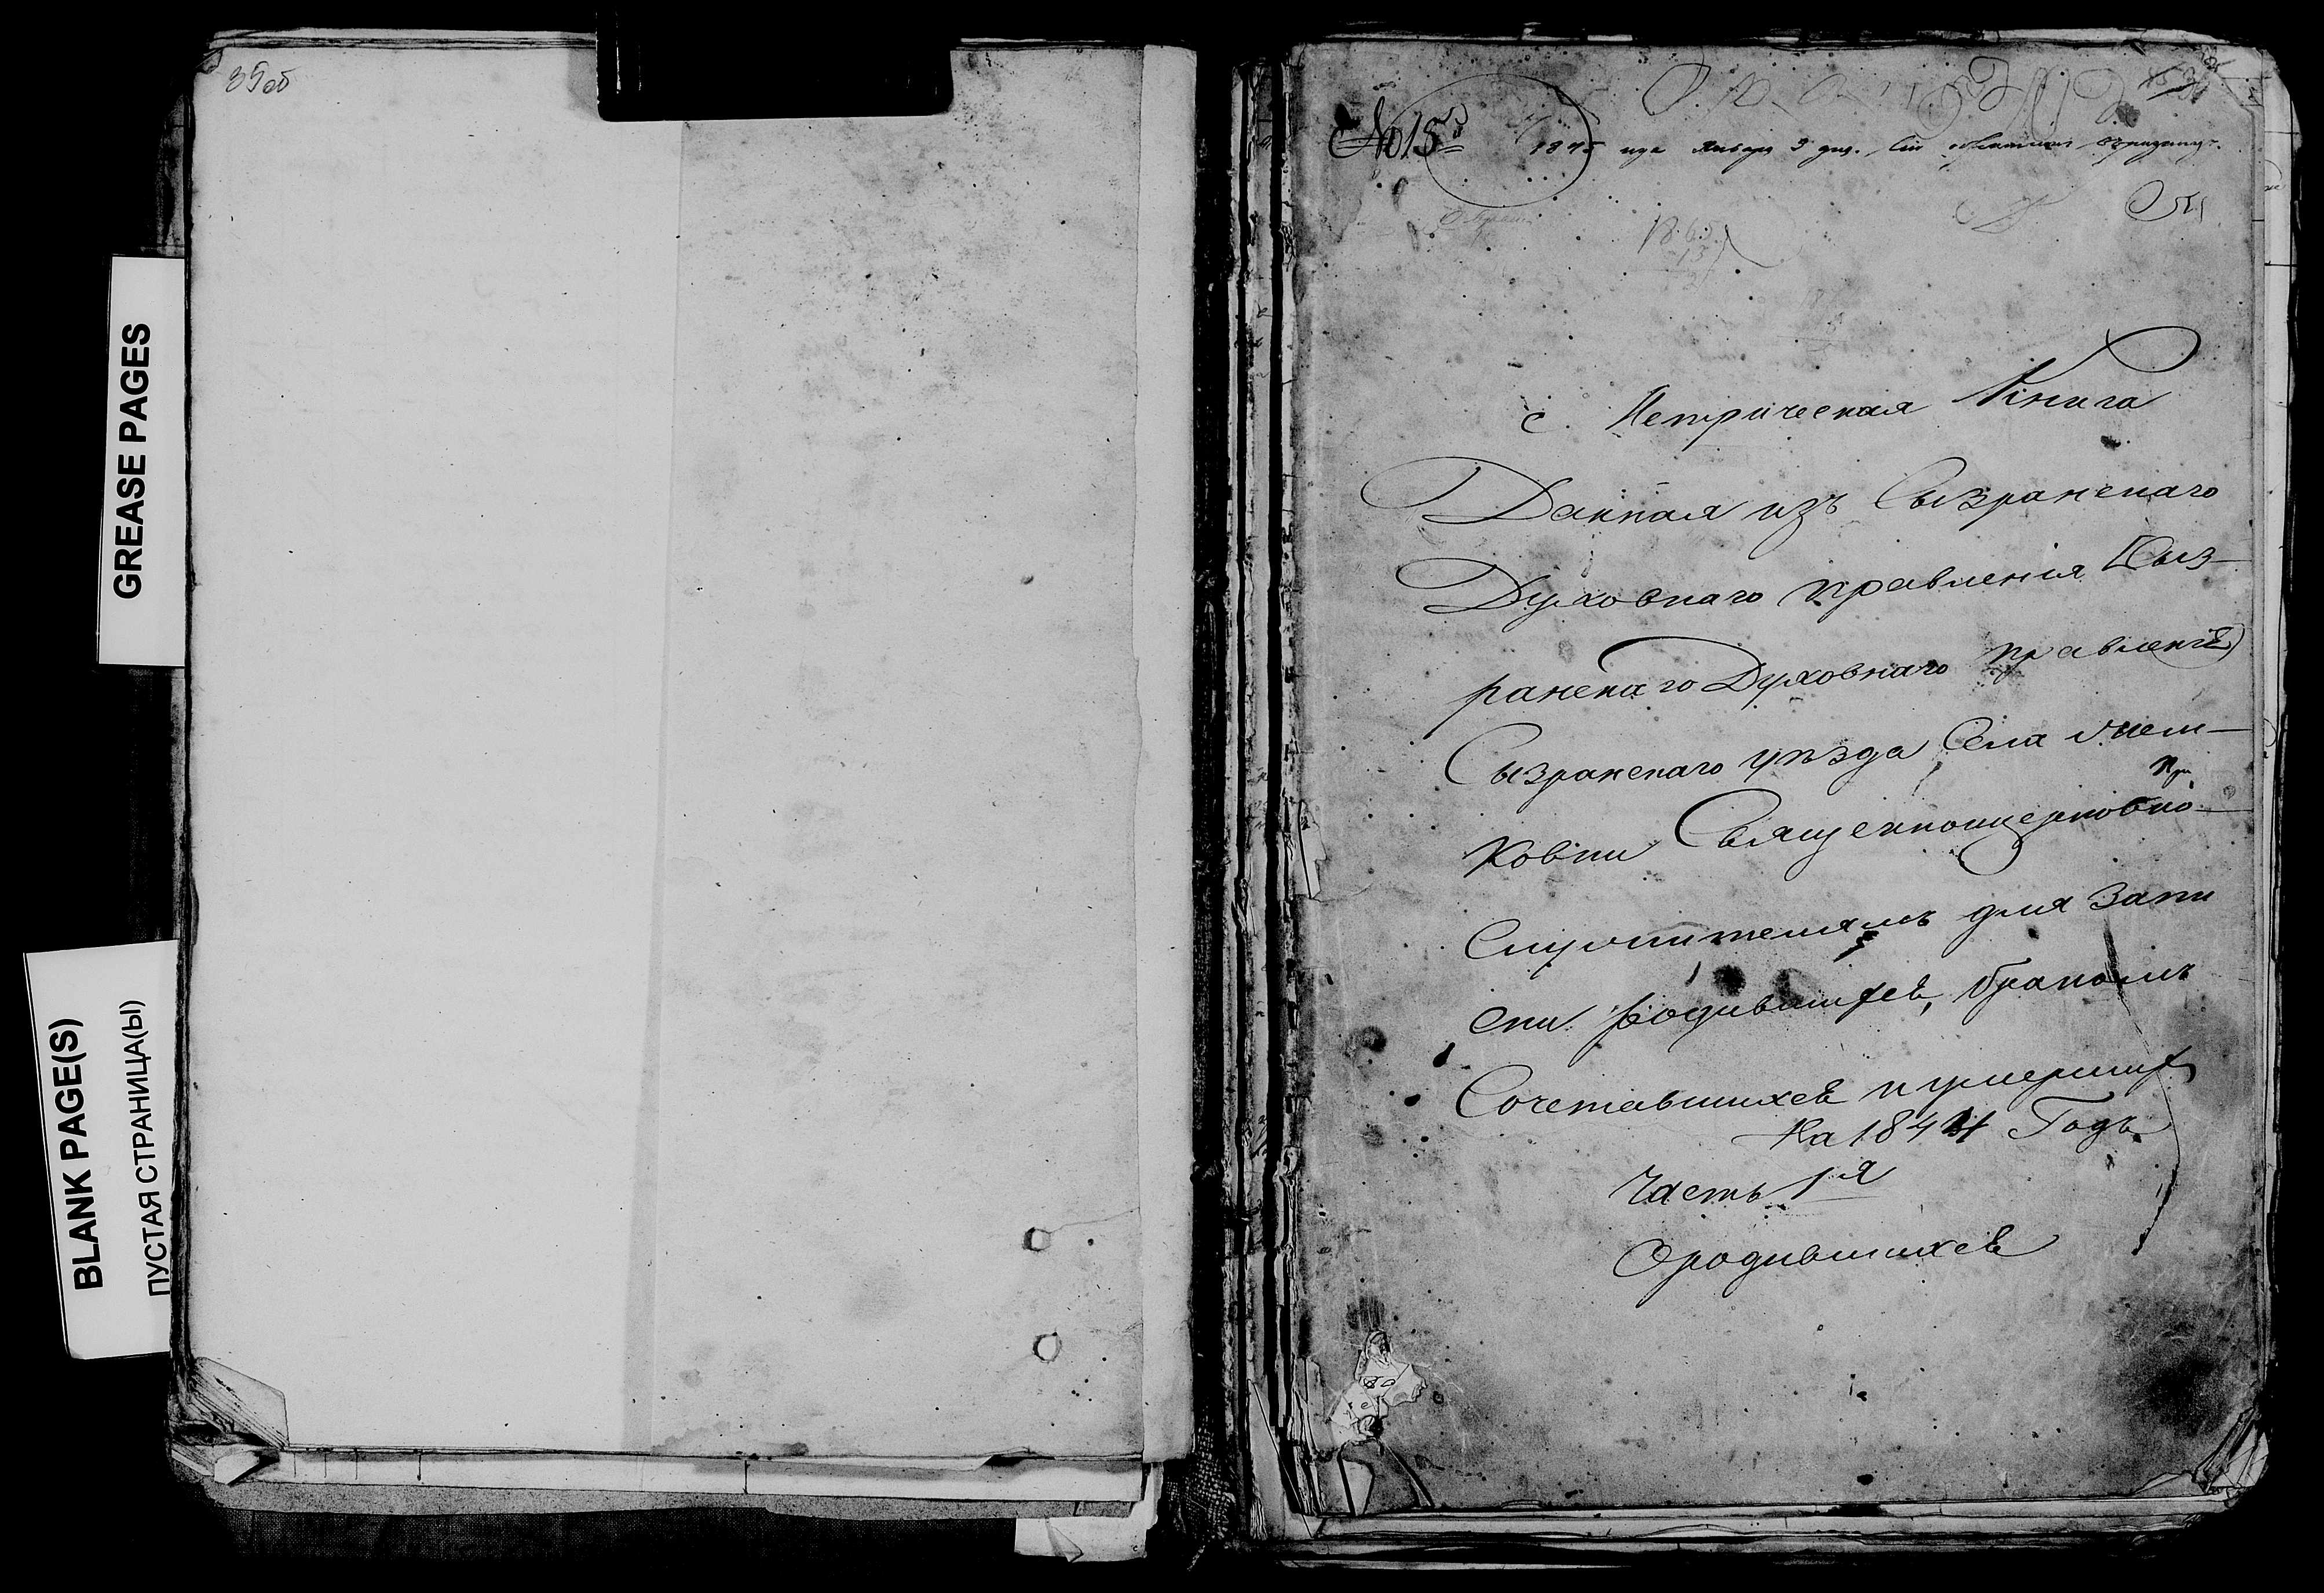 35об
GREASE PAGES
BLANK PAGE(S)
ПУСТАЯ СТРАНИЦА(Ы)
№ 15й
1845 года Января 3 дня.
с. Метрическая Книга
Данная изъ Сызранскаго
Духовнаго правления [Сыз-
ранскаго Духовнаго правления)
Сызранскаго уѣзда Села
При
ковпи Священноцерковно
Служителямъ для Запи
ски родившихся, бракомъ
Сочетавшихся и умерших
На 1844 Годъ
Часть 1я
О родившихся